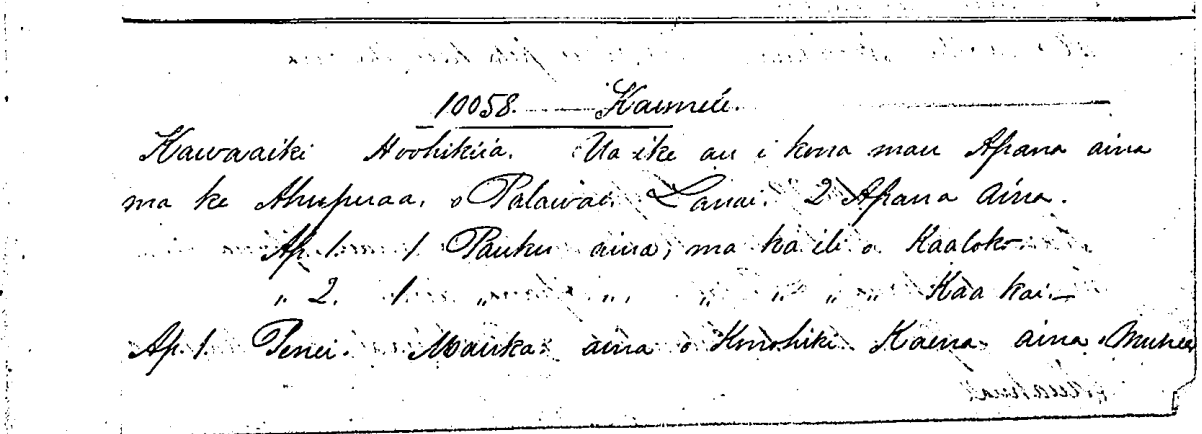 10058. Kaumeie.
Kawaaiki Hoohikiia. Ua ike au i kona mau Apana aina
ma ke Ahupuaa, o Palawai Lanai. 2 Apana aina.
Ap. 1. 1 Pauku aina, ma ka ili o Kaaloko
" 2. 1 " " " " " " Kaa kai.
Ap. 1. Penei. Mauka aina o Konohiki Kaena aina o